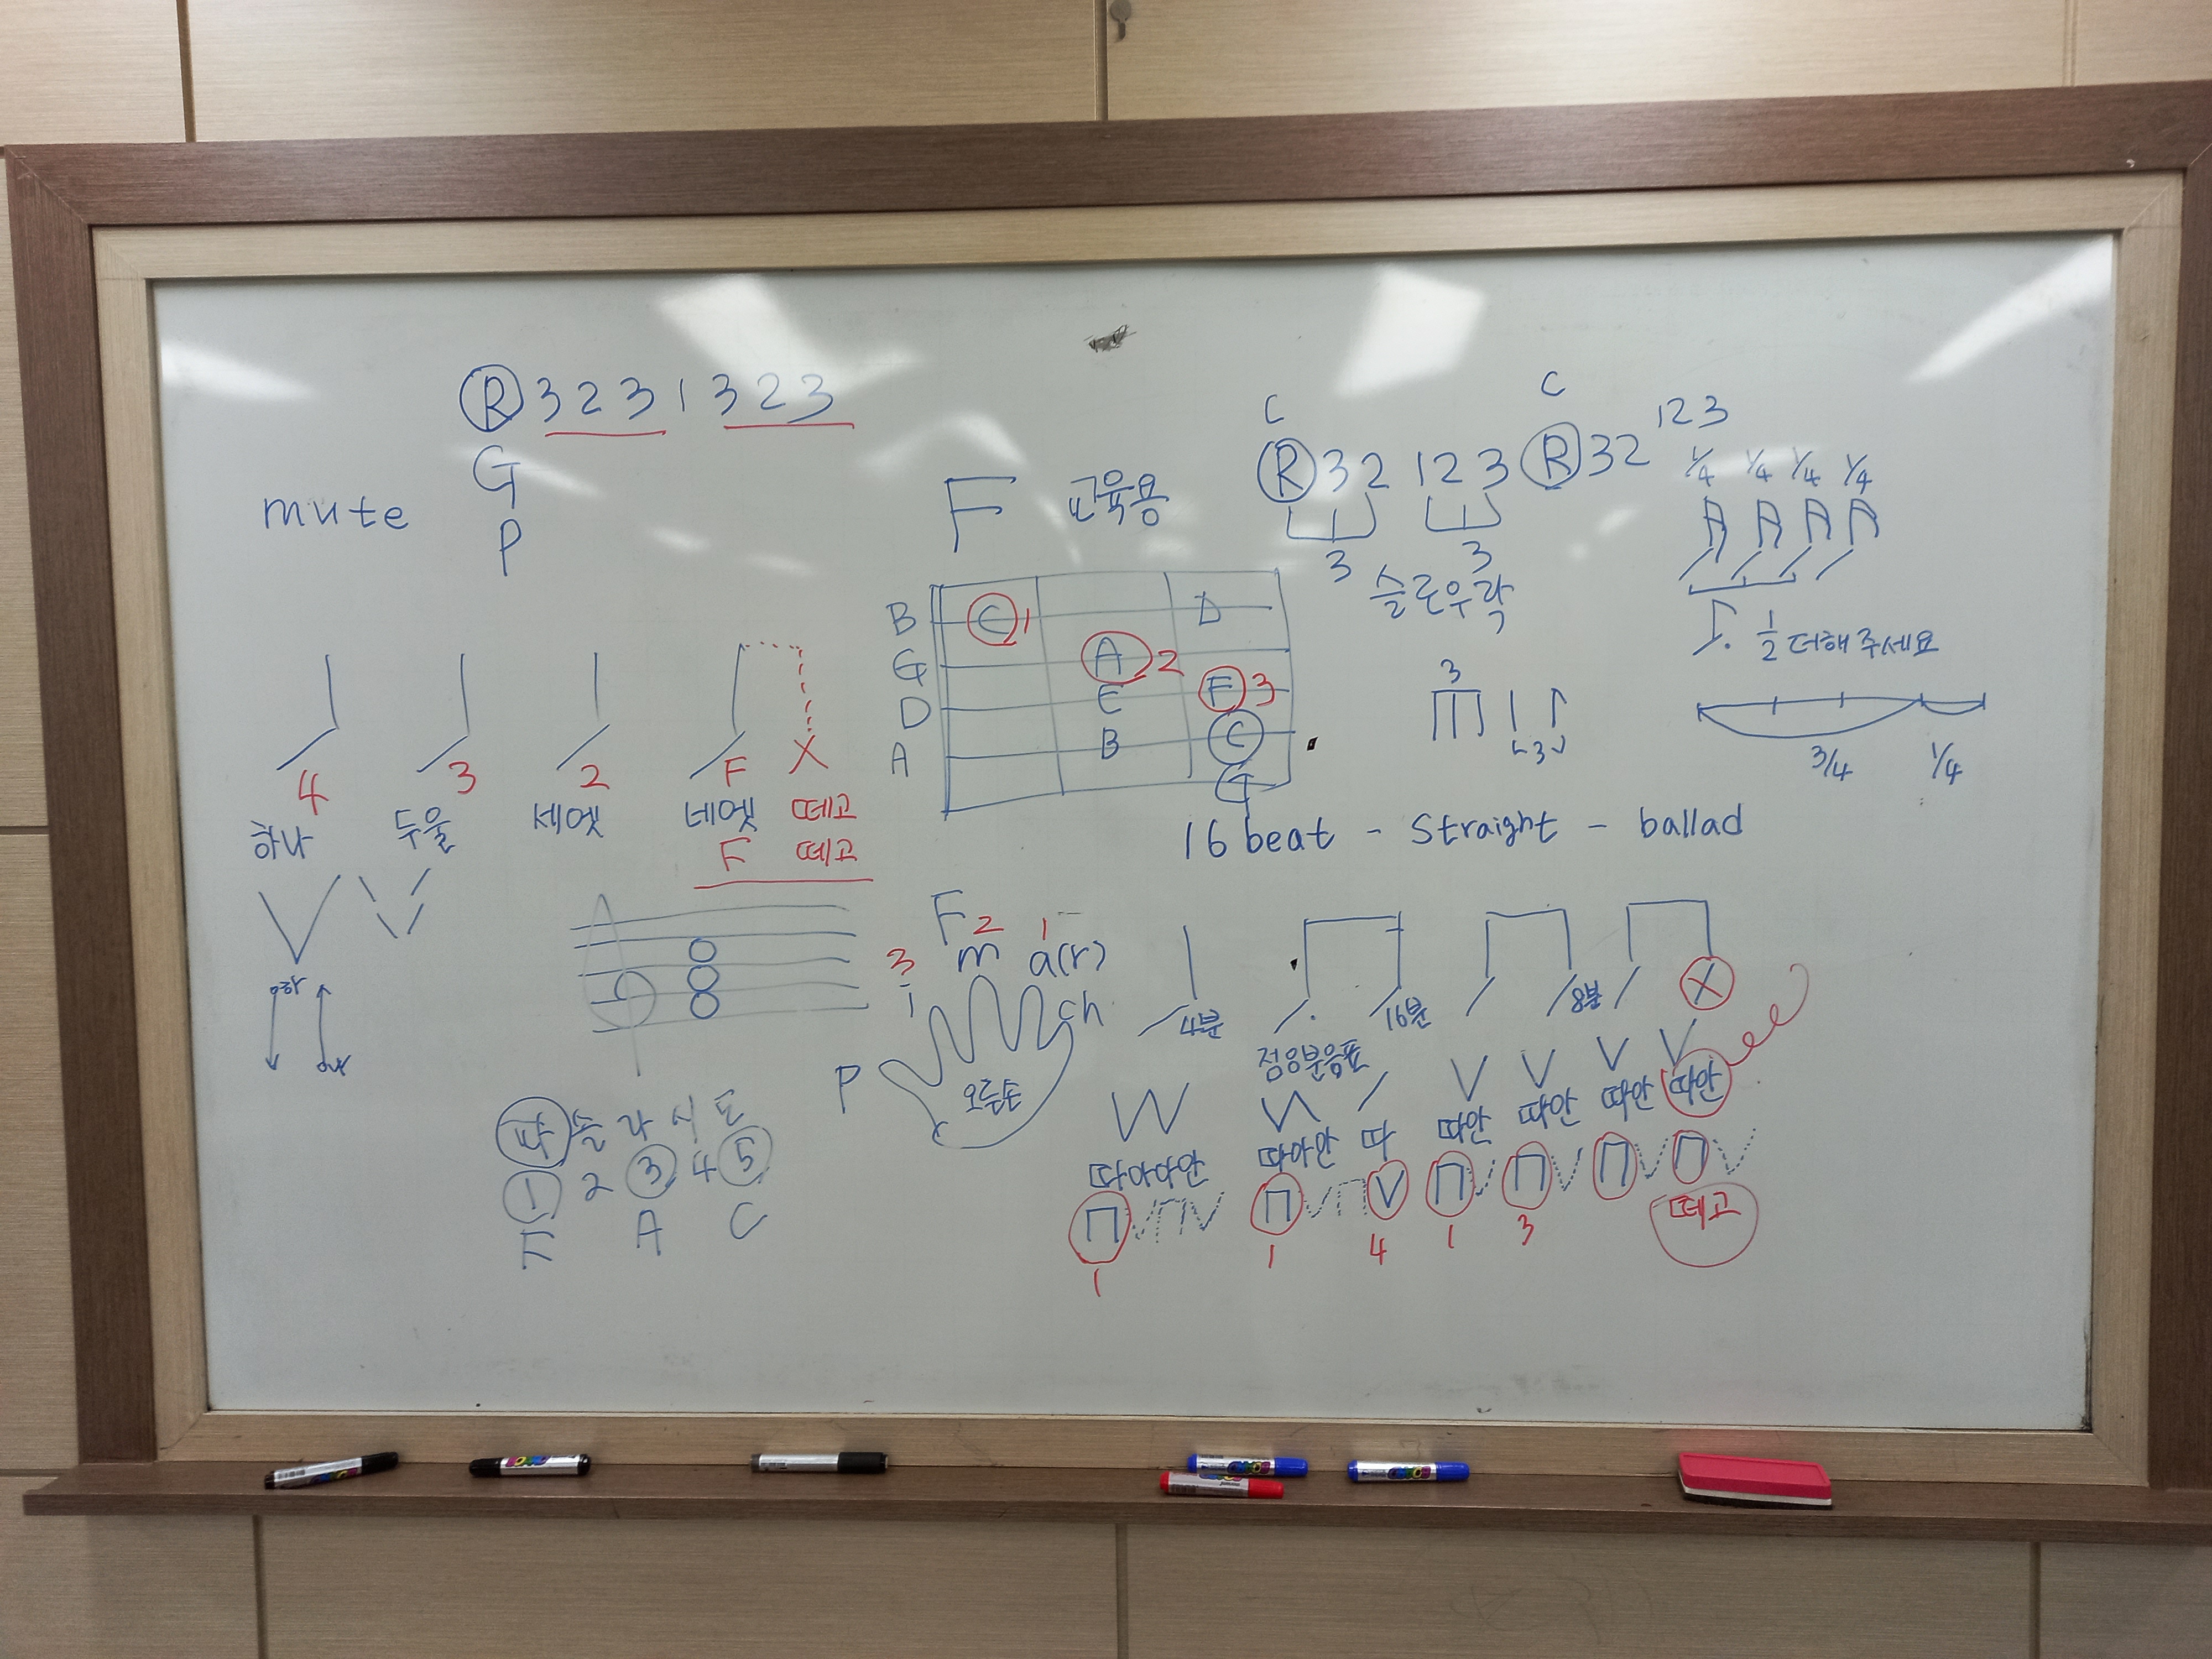 Ⓡ 3 2 3 1 3 2 3
G
P
mute
4 3 2 F X
하나 두울 세엣 네엣 떼고
F 떼고
F 교육용
B C 1 D
G A 2
D E F 3
A B C
G
C C
Ⓡ 3 2 1 2 3 Ⓡ 3 2 1 2 3
3 3
슬로우락
1/4 1/4 1/4 1/4
1/2 더해 주세요
3
3
3/4 1/4
16 beat - straight - ballad
F
3 2 1
i m a(r)
ch
P
오른손
파 솔 라 시 도
① 2 ③ 4 ⑤
F A C
4분 16분 8분 X
점8분음표
V V V V
따아아안 따아안 따 따안 따안 따안 따안
1 1 4 1 3
떼고